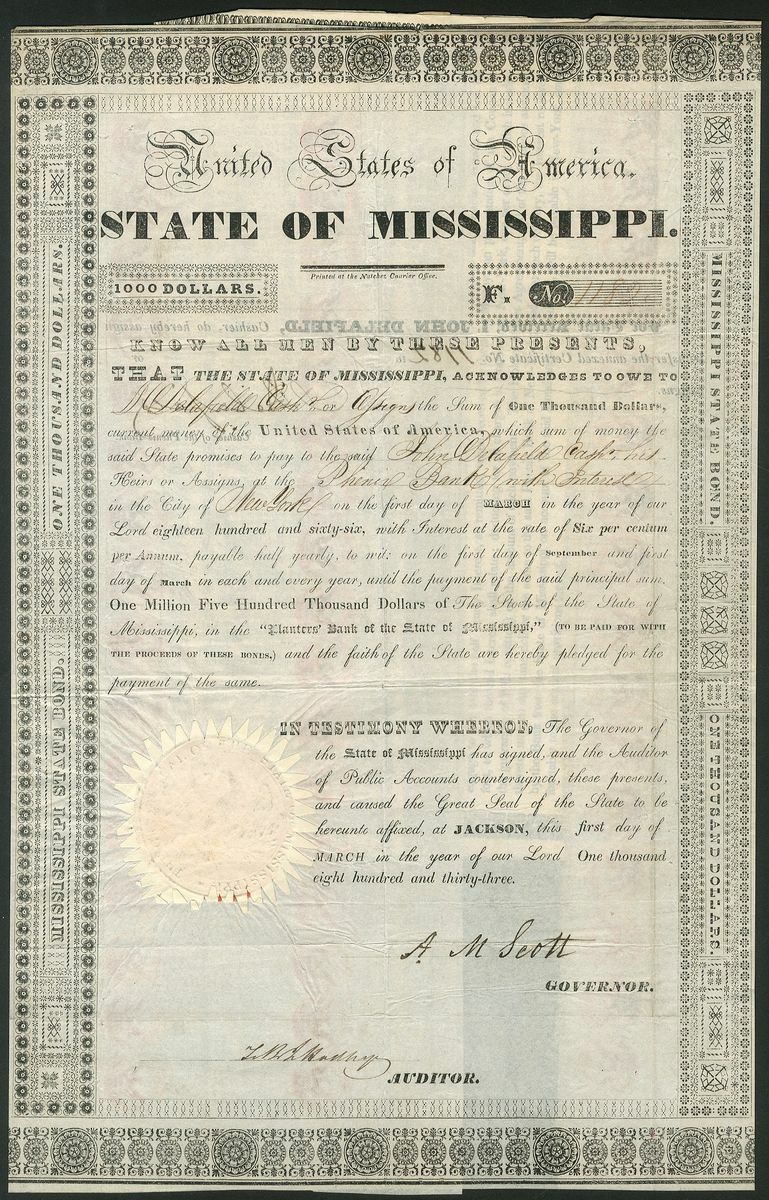 United States of America.
STATE OF MISSISSIPPI.
Printed at the Natchez Courier Office.
1000 DOLLARS.
F. No.
KNOW ALL MEN BY THESE PRESENTS,
THAT THE STATE OF MISSISSIPPI, ACKNOWLEDGES TO OWE TO
Delafield Cashr or Assigns the Sum of One Thousand Dollars,
current money of the United States of America, which sum of money the
said State promises to pay to the said John Delafield Cashr his
Heirs or Assigns, at the Phenix Bank with Interest
in the City of New York on the first day of MARCH in the year of our
Lord eighteen hundred and sixty-six, with Interest at the rate of Six per centum
per Annum, payable half yearly, to wit: on the first day of September and first
day of March in each and every year, until the payment of the said principal sum.
One Million Five Hundred Thousand Dollars of The Stock of the State of
Mississippi, in the "Planters' Bank of the State of Mississippi," (TO BE PAID FOR WITH
THE PROCEEDS OF THESE BONDS,) and the faith of the State are hereby pledged for the
payment of the same.
IN TESTIMONY WHEREOF, The Governor of
the State of Mississippi has signed, and the Auditor
of Public Accounts countersigned, these presents,
and caused the Great Seal of the State to be
hereunto affixed, at JACKSON, this first day of
MARCH in the year of our Lord One thousand
eight hundred and thirty-three.
A M Scott
GOVERNOR.
AUDITOR.
MISSISSIPPI STATE BOND. ONE THOUSAND DOLLARS.
MISSISSIPPI STATE BOND. ONE THOUSAND DOLLARS.